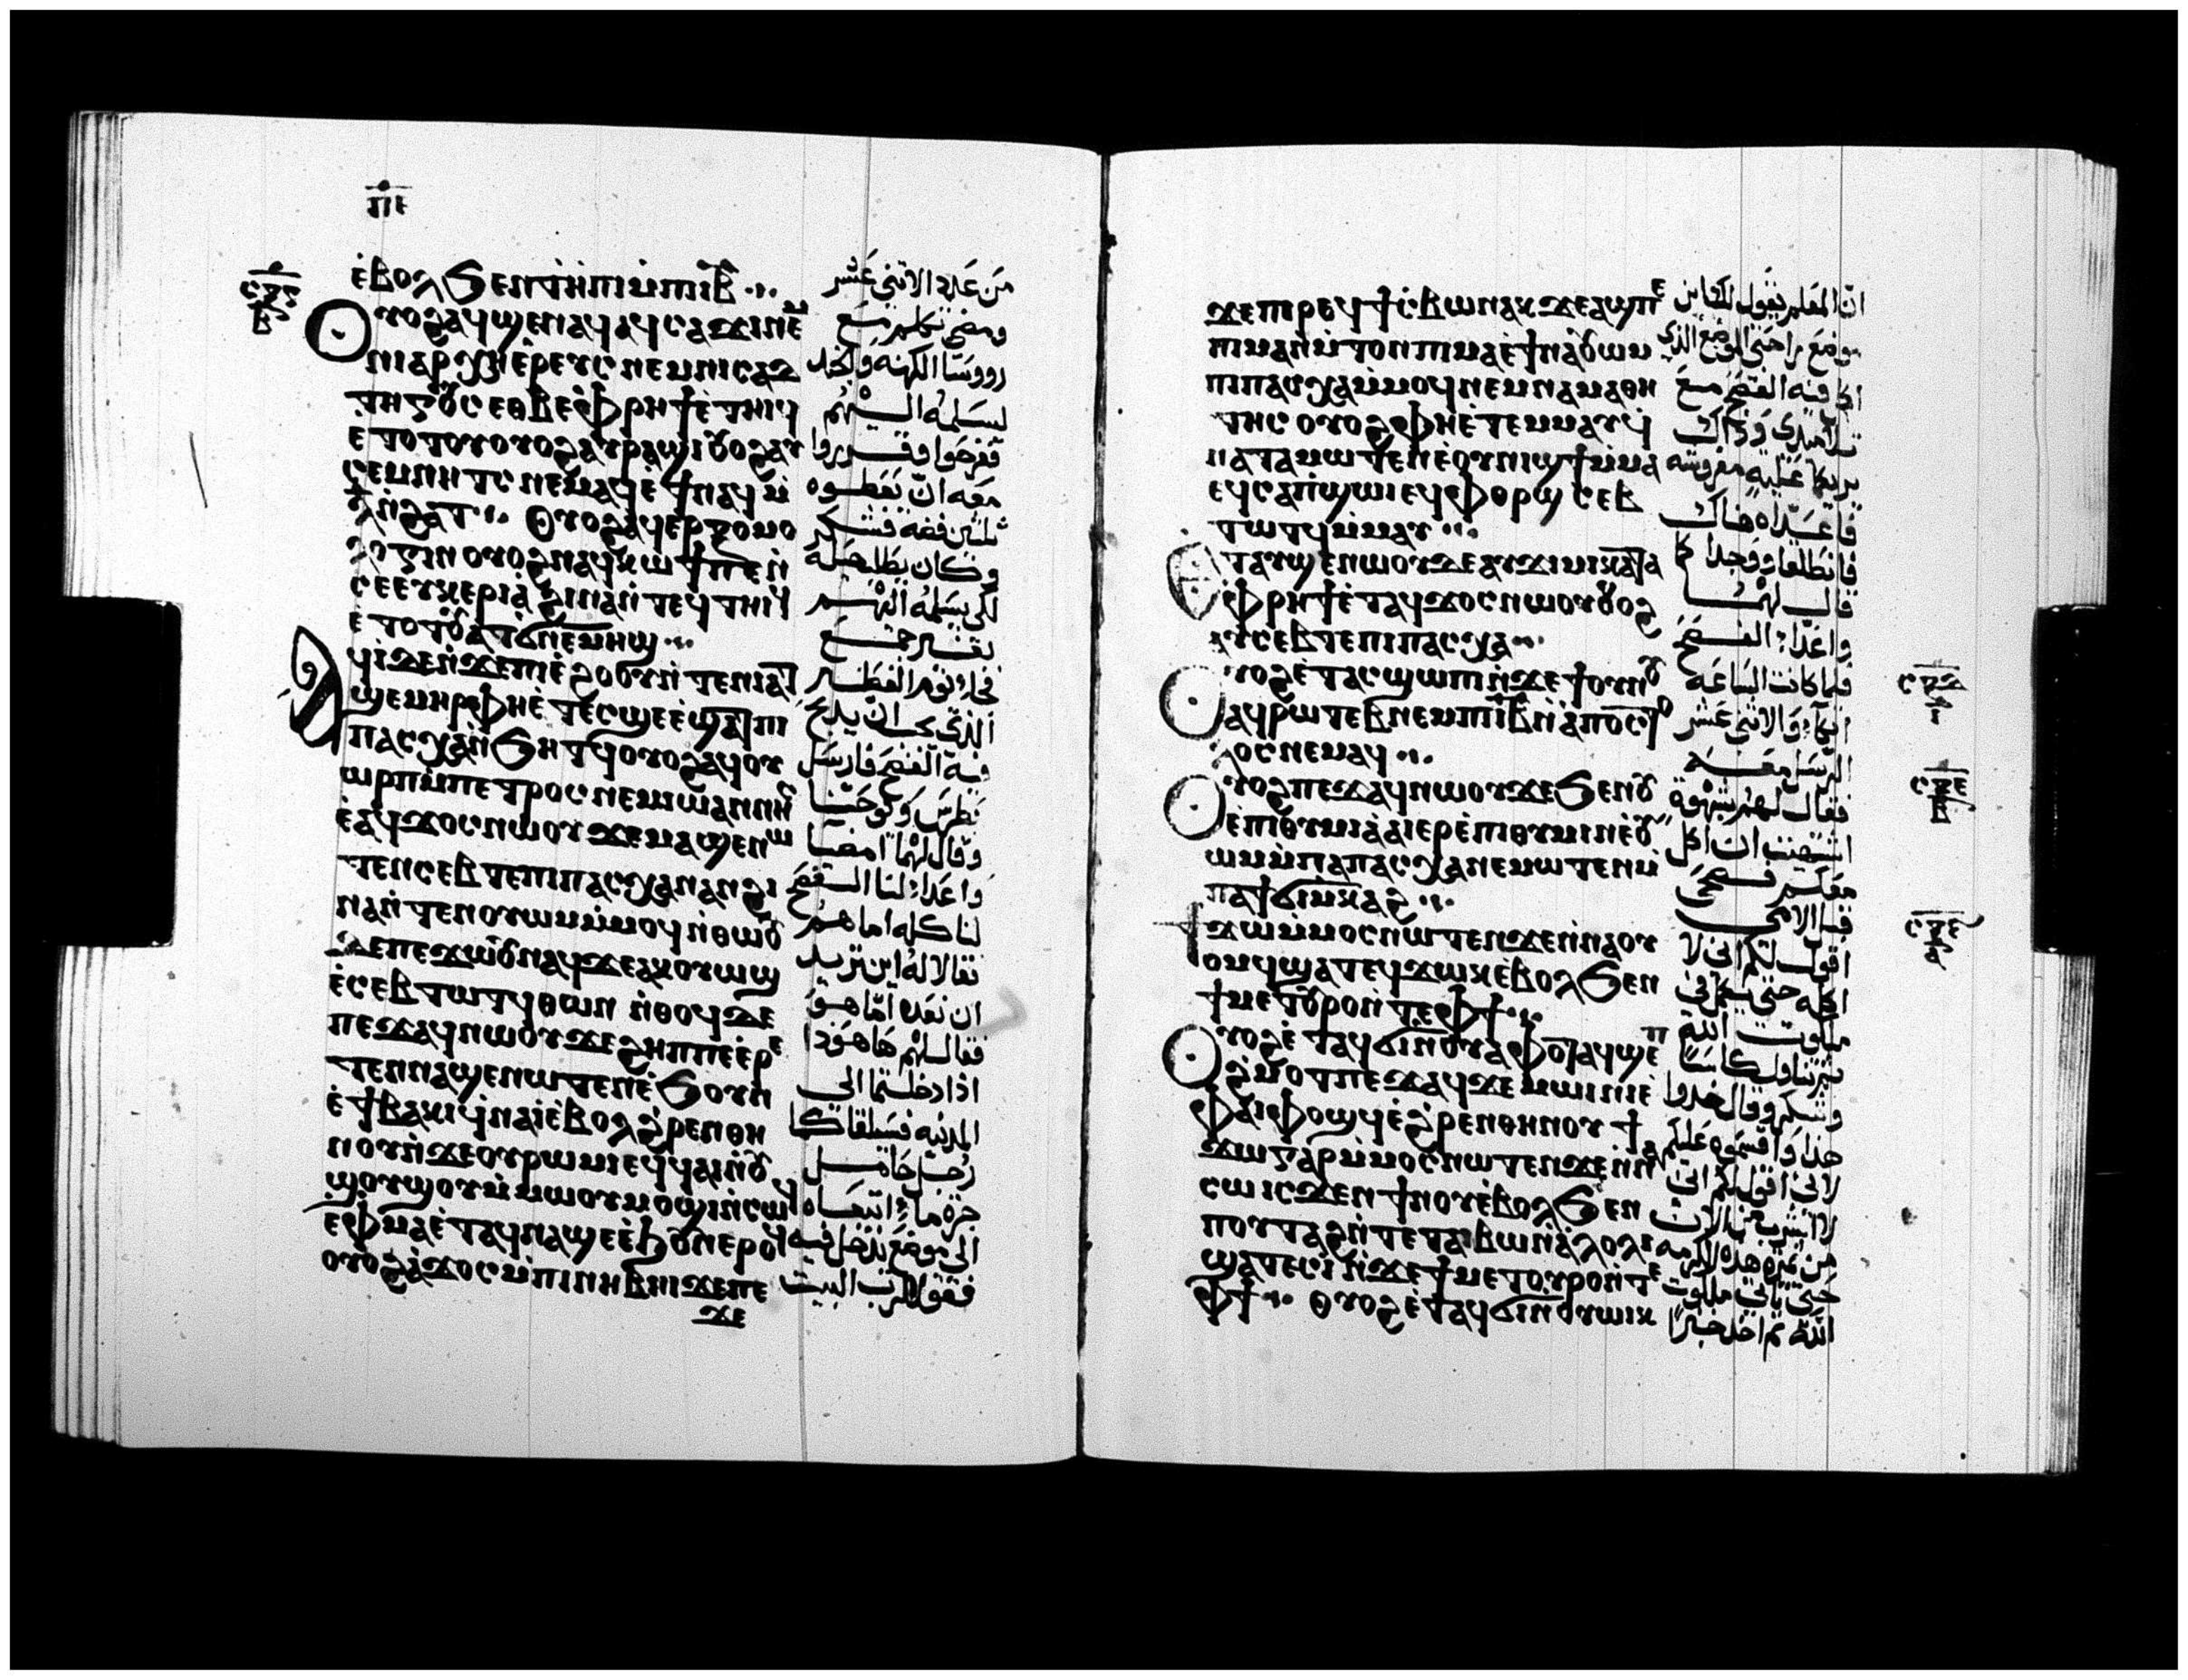 ⲡⲉ
ⲉ̇ⲃⲟⲗϧⲉⲛⲧⲏ̇ⲡⲓⲙ̇ⲡⲓⲓⲃ̅
ⲟⲩⲟϩⲁϥϣⲉⲛⲁϥⲁϥⲥⲁϫⲓⲛⲉⲙ
ⲛⲓⲁⲣⲭⲏⲉ̇ⲣⲉⲩⲥ ⲛⲉⲙⲛⲓⲥⲁϧ
ⲉⲧⲟⲧⲟⲩⲟⲩⲟϩⲁⲩⲣⲁϣⲓⲟⲩⲟϩⲁⲩ
ⲥⲉⲙⲛⲏⲧⲥ ⲛⲉⲙⲁϥⲉ̇ϯⲛⲁϥⲙ̇
ⲟⲩⲟϩⲁϥⲉⲣⲉⲝⲟⲙⲟ
ⲗⲟⲅⲓⲛ ⲟⲩⲟϩⲛⲁϥⲕⲱϯ
ⲥⲉⲉⲩⲕⲉⲣⲓⲁ̇ ϩⲓⲛⲁⲛ̇ⲧⲉϥⲧⲏⲓϥ
ⲁϥⲓ̇ϫⲉⲛ̇ϫⲉⲡⲓⲉ̇ϩⲟⲟⲩⲛ̇ⲧⲉⲛⲓⲁ
ϣⲉⲙⲏⲣⲫⲏⲉ̇ⲧⲉⲥϣⲉⲉ̇ϣⲁⲧⲡⲓ
ⲡⲁⲥⲭⲁⲛ̇ϧⲏⲧϥⲟⲩⲟϩⲁϥⲟⲩ
ⲱⲣⲡⲙ̇ⲡⲉⲧⲣⲟⲥ ⲛⲉⲙⲓⲱⲁⲛⲛⲏ
ⲉ̇ⲁϥϫⲟⲥⲛⲱⲟⲩ ϫⲉⲙⲁϣⲉⲛⲱ
ⲧⲉⲛⲥⲉⲃⲧⲉⲡⲓⲡⲁⲥⲭⲁⲛⲁⲛϩⲓ
ⲛⲁⲛ̇ⲧⲉⲛⲟⲩⲱⲙⲙ̇ⲙⲟϥ ⲛ̇ⲑⲱⲟⲩ
ⲇⲉⲡⲉϫⲱⲟⲩⲛⲁϥϫⲉⲁⲕⲟⲩⲱϣ
ⲉ̇ⲥⲉⲃⲧⲱⲧϥⲑⲱⲛ ⲛ̇ⲑⲟϥⲇⲉ
ⲡⲉϫⲁϥⲛⲱⲟⲩϫⲉϩⲏⲡⲡⲉⲉ̇ⲣⲉ
ⲧⲉⲛⲛⲁϣⲉⲛⲱⲧⲉⲛⲉ̇ϧⲟⲩⲛ
ⲉ̇ϯⲃⲁⲕⲓϥⲛ̇ⲁⲓ̇ⲉ̇ⲃⲟⲗϩⲣⲉⲛⲑⲏ
ⲛⲟⲩⲛ̇ϫⲉⲟⲩⲣⲱⲙⲓⲉϥϥⲁⲓⲛ̇ⲟⲩ
ϣⲟⲩϣⲟⲩⲙ̇ⲙⲱⲟⲩⲙⲟϣⲓⲛ̇ⲥⲱϥ
ⲉⲫⲙⲁⲉ̇ⲧⲁϥⲛⲁϣⲉⲉ̇ϧⲟⲩⲛⲉⲣⲟϥ
ⲟⲩⲟϩⲁ̇ϫⲟⲥⲙ̇ⲡⲓⲛⲏⲃⲏⲓϫⲉⲡⲉ
ϫⲉ
من عدد الاثنى عشر
ومضى تكلم مع
رووسا الكهنه والجند
ليسلمه اليهم
ففرحوا وقرروا
معه ان يعطوه
ثلثين فضه فشكر
وكان يطلب
لكى يسلمه اليهم
بغير جمع
فجا يوم الفطير
الذى يجب ان يذبح
فيه الفصح فارسل
بطرس ويوحنا
وقال لهما امضيا
واعدا لنا الفصح
لناكله اما هم
فقالا له اين تريد
ان نعده اما هو
فقال لهم ها هوذا
اذا دخلتما الى
المدينه فسيلقاكما
رجل حامل
جرة ما اتبعاه
الى موضع يدخل فيه
فقولا لرب البيت
ϫⲉⲡⲓⲣⲉϥϯⲥ̇ⲃⲱⲛⲁⲕ ϫⲉⲁϣⲡⲉ
ⲡⲓⲙⲁⲛ̇ⲙ̇ⲧⲟⲛⲡⲓⲙⲁⲉ̇ϯⲛⲁⲟⲩⲱⲙ
ⲙⲡⲓⲡⲁⲥⲭⲁⲙ̇ⲙⲟϥⲛⲉⲙⲛⲁⲙⲁⲑⲏ
ⲧⲏⲥ ⲟⲩⲟϩⲫⲏⲉ̇ⲧⲉⲙⲙⲁⲩϥ
ⲛⲁⲧⲁⲙⲱⲧⲉⲛⲉ̇ⲟⲩⲛⲓϣϯⲙ̇ⲙⲁ
ⲉϥⲥⲁⲡ̇ϣⲱⲓⲉϥⲫⲟⲣϣ ⲥⲉⲃ
ⲧⲱⲧϥⲙ̇ⲙⲁⲩ
ⲉⲧⲁⲩϣⲉⲛⲱⲟⲩⲇⲉⲁⲩϫⲓⲙⲓⲕⲁⲧⲁ
ⲫⲣⲏϯⲉ̇ⲧⲁϥϫⲟⲥⲛⲱⲟⲩⲟⲩⲟϩ
ⲁⲩⲥⲉⲃⲧⲉⲡⲓⲡⲁⲥⲭⲁ
ⲟⲩⲟϩⲉ̇ⲧⲁⲥϣⲱⲡⲓⲛ̇ϫⲉϯⲟⲩⲛⲟⲩ
ⲁϥⲣⲱⲧⲉⲃⲛⲉⲙⲡⲓⲓⲃ̅ⲛ̇ⲁ̇ⲡⲟⲥⲧⲟ
ⲗⲟⲥⲛⲉⲙⲁϥ
ⲟⲩⲟϩⲡⲉϫⲁϥⲛⲱⲟⲩϫⲉϧⲉⲛⲟⲩ
ⲉ̇ⲡⲓⲑⲩⲙⲓⲁ̇ⲁⲓⲉⲣⲉ̇ⲡⲓⲑⲩⲙⲓⲛⲉ̇ⲟⲩ
ⲱⲙⲙ̇ⲡⲁⲓⲡⲁⲥⲭⲁⲛⲉⲙⲱⲧⲉⲛⲙ̇
ⲡⲁϯϭⲓⲙ̇ⲕⲁϩ
ϯϫⲱⲙ̇ⲙⲟⲥⲛⲱⲧⲉⲛϫⲉⲛ̇ⲛⲁⲟⲩ
ⲟⲙϥϣⲁⲧⲉϥϫⲱⲕⲉ̇ⲃⲟⲗϧⲉⲛ
ϯⲙⲉⲧⲟⲩⲣⲟⲛ̇ⲧⲉⲫϯ
ⲟⲩⲟϩⲉ̇ⲧⲁϥϭⲓⲛ̇ⲟⲩⲁⲫⲟⲧⲁϥϣⲉⲡ
ϩ̇ⲙⲟⲧⲡⲉϫⲁϥϫⲉ ⲙⲱⲓⲛⲓⲉ̇
ⲫⲁⲓⲫⲟϣϥⲉ̇ϩ̇ⲣⲉⲛⲑⲏⲛⲟⲩ ϯ
ϫⲱⲅⲁⲣⲙ̇ⲙⲟⲥⲛⲱⲧⲉⲛϫⲉⲛ̇ⲛⲁ
ⲥⲱⲓⲥϫⲉⲛϯⲛⲟⲩⲉ̇ⲃⲟⲗϧⲉⲛ
ⲡⲟⲩⲧⲁϩⲛ̇ⲧⲉⲧⲁⲓⲃⲱⲛ̇ⲁ̇ⲗⲟⲗⲓ
ϣⲁⲧⲉⲥⲓ̇ⲛ̇ϫⲉϯⲙⲉⲧⲟⲩⲣⲟⲛ̇ⲧⲉ
ⲫϯ ⲟⲩⲟϩⲉ̇ⲧⲁϥϭⲓⲛ̇ⲟⲩⲱⲓⲕ
ان المعلم يقول لك اين
موضع راحتى الموضع الذى
اكل فيه الفصح مع
تلاميذى وذاك
يريكما علية مفروشه
فاعداه هناك
فانطلقا ووجدا كما
قال لهما
واعدا الفصح
فلما كانت الساعه
اتكا والاثنى عشر
الرسل معه
فقال لهم شهوة
اشتهيت ان اكل
معكم فصحى
قبل الامى
اقول لكم انى لا
اكله حتى يكمل فى
ملكوت الله
ثم تناول كاسا
وشكر وقال خذوا
هذا واقسموه عليكم
لانى اقول لكم انى
لا اشرب من الان
من ثمرة هذه الكرمه
حتى ياتى ملكوت
الله ثم اخذ خبزا